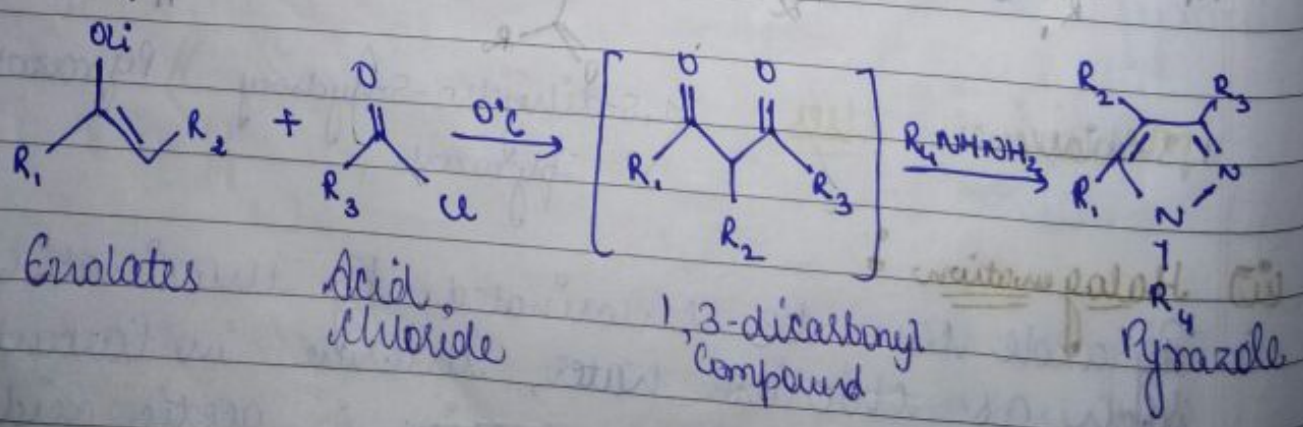 OLi
R₁
R₂
+
O
R₃
Cl
0°C
O O
R₁
R₂
R₃
R₄NHNH₂
R₂
R₃
R₁
N
N
R₄
Enolates
Acid
Chloride
1,3-dicarbonyl
Compound
Pyrazole